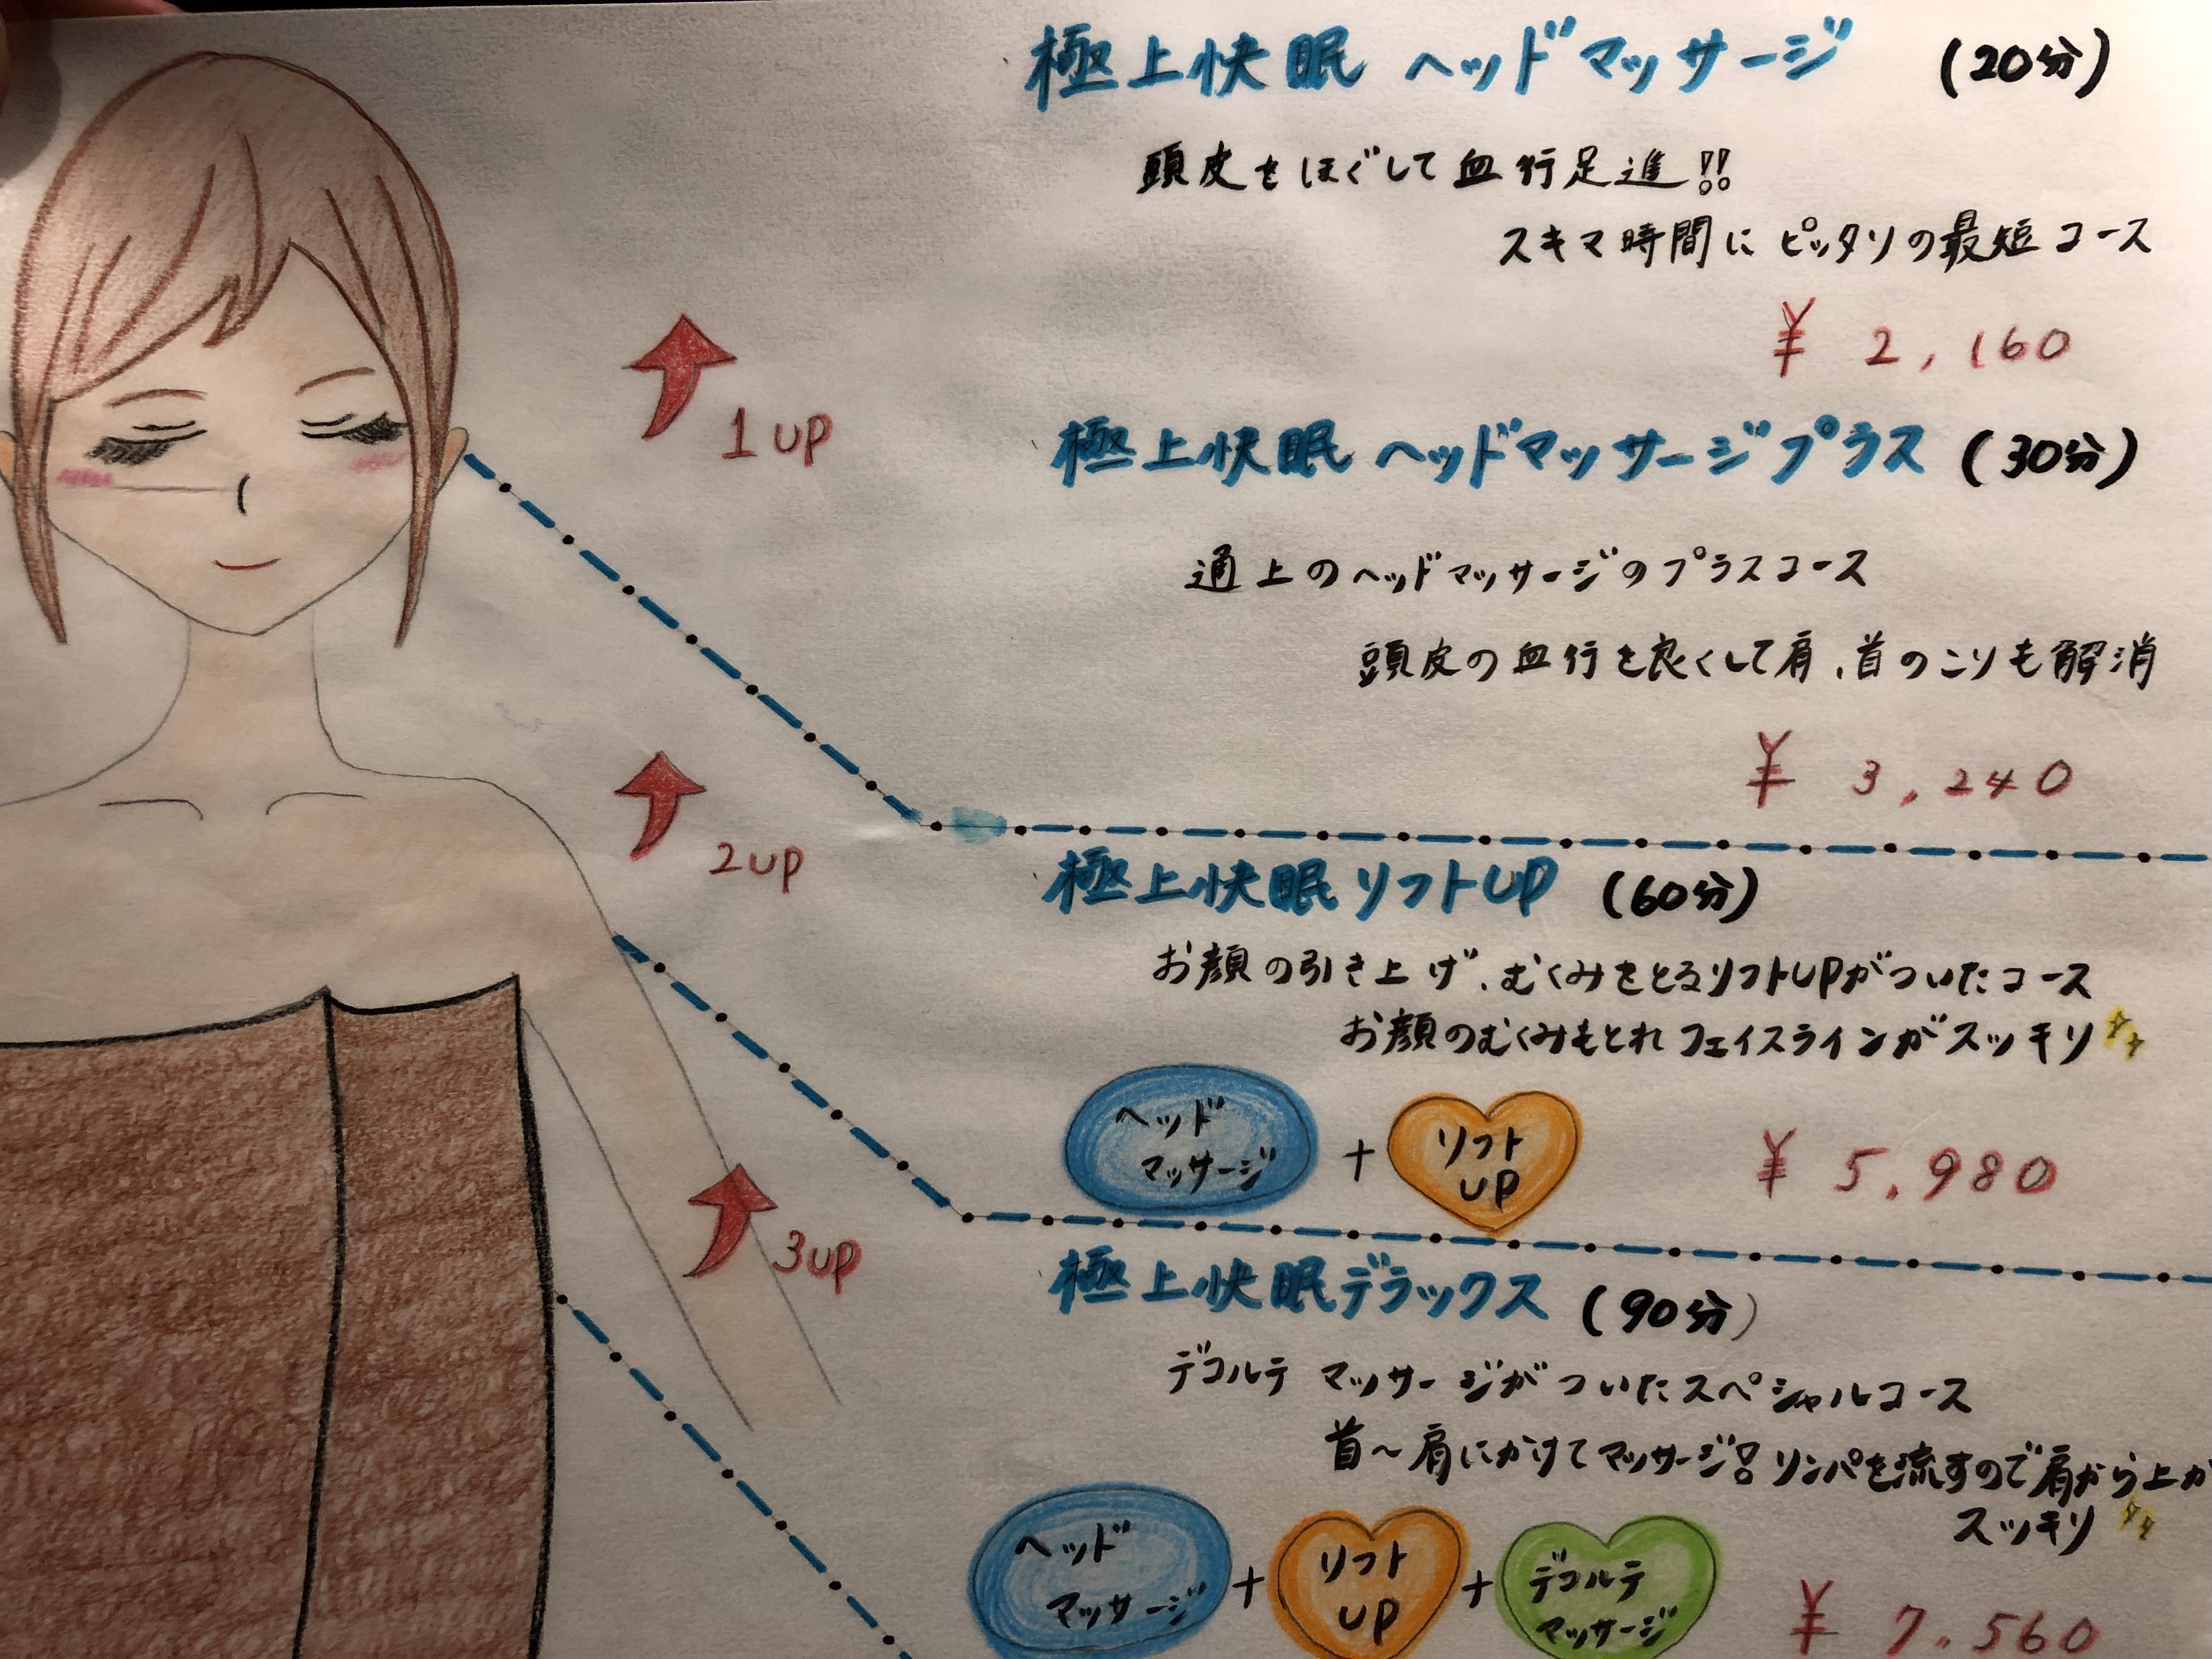 極上快眠 ヘッドマッサージ (20分)
頭皮をほぐして血行足進!!
スキマ時間にピッタリの最短コース
¥ 2,160
1up
極上快眠 ヘッドマッサージプラス (30分)
通上のヘッドマッサージのプラスコース
頭皮の血行を良くして肩、首のこりも解消
¥ 3,240
2up
極上快眠リフトUP (60分)
お顔の引き上げ、むくみをとるリフトUPがついたコース
お顔のむくみもとれフェイスラインがスッキリ
ヘッド
マッサージ
+
リフト
UP
¥ 5,980
3up
極上快眠デラックス (90分)
デコルテ マッサージがついたスペシャルコース
首〜肩にかけてマッサージ! リンパを流すので肩から上が
スッキリ
ヘッド
マッサージ
+
リフト
UP
+
デコルテ
マッサージ
¥ 7,560